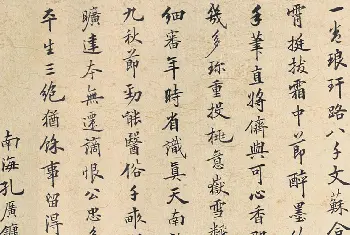 一卷琅玕路八千文蘇合
霄挺拔霜中節醉墨
手筆直將儕與可心香
幾多珍重投桃意嶽雪
細審年時省識真天南
九秋節勁能醫俗千畝
曠達本無還謫恨公思
平生三絕猶餘事留得
南海孔廣鏞